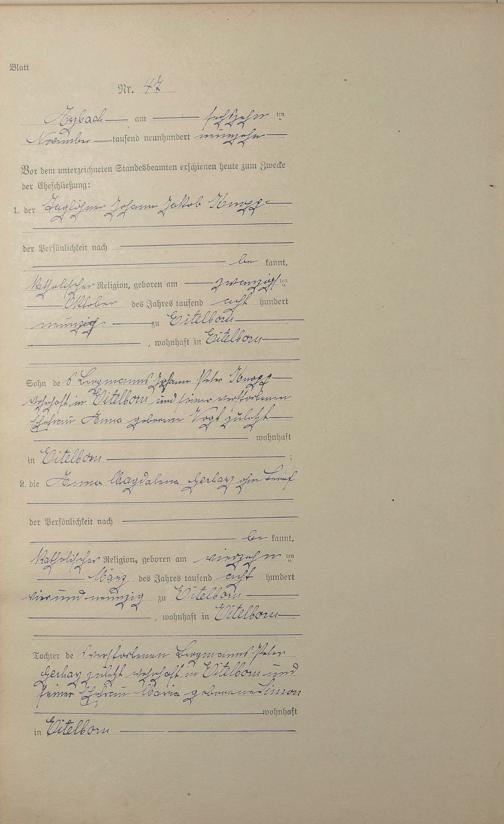 Blatt
Nr. 47
Arzbach am sechszehn ten
November tausend neunhundert neunzehn
Vor dem unterzeichneten Standesbeamten erschienen heute zum Zwecke
der Eheschließung:
1. der Taglöhner Johann Jakob Knopp
der Persönlichkeit nach
be kannt,
katholischer Religion, geboren am zwanzigs ten
Oktober des Jahres tausend acht hundert
neunzig zu Eitelborn
, wohnhaft in Eitelborn
Sohn des Bergmanns Johann Peter Knopp
wohnhaft in Eitelborn und seiner verstorbenen
Ehefrau Anna geborene Vogt zuletzt
wohnhaft
in Eitelborn ;
2. die Anna Magdalena Gerlay ohne Beruf
der Persönlichkeit nach
be kannt,
katholischer Religion, geboren am vierzehn ten
März des Jahres tausend acht hundert
vierundneunzig zu Eitelborn
, wohnhaft in Eitelborn
Tochter des verstorbenen Bergmanns Peter
Gerlay zuletzt wohnhaft in Eitelborn und
seiner Ehefrau Maria geborene Simon
wohnhaft
in Eitelborn